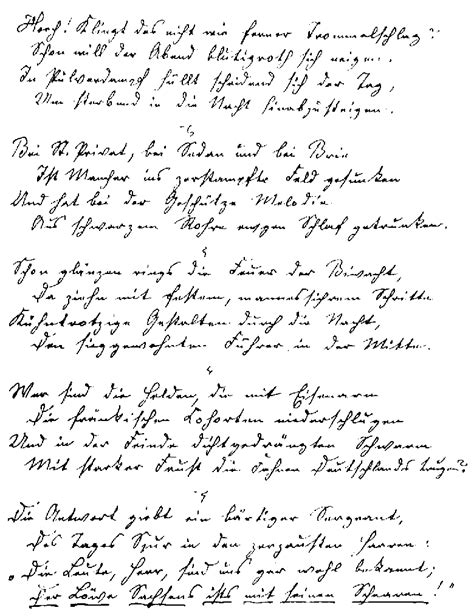 Horch! Klingt das nicht wie ferner Trommelschlag?
Schon will der Abend blutigroth sich neigen.
In Pulverdampf hüllt scheidend sich der Tag,
Um sterbend in die Nacht hinabzusteigen.
Bei St. Privat, bei Sedan und bei Brie
Ist Mancher ins zerstampfte Feld gesunken
Und hat bei der Geschütze Melodie
Aus schwarzem Rohre ew'gen Schlaf getrunken.
Schon glänzen rings die Feuer der Biwacht,
Da ziehn mit festem, mannessichrem Schritte
Kühntrotzige Gestalten durch die Nacht,
Den sieggewohnten Führer in der Mitte.
Wer sind die Helden, die mit Eisenarm
Die fränkischen Cohorten niederschlugen
Und in der Feinde dichtgedrängten Schwarm
Mit starker Faust die Fahnen Deutschlands trugen?
Die Antwort giebt ein bärtiger Sergeant,
Des Tages Spur in den zerzausten Haaren:
"Die Leute, Herr, sind uns gar wohl bekannt;
Der Löwe Sachsens ists mit seinen Schaaren!"